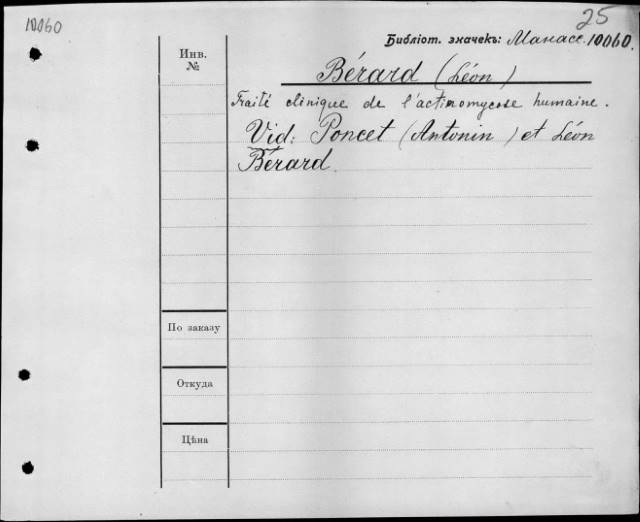 10060
25
Библіот. значекъ: Манасс. 10060.
Инв. №
Bérard (Léon)
Traité clinique de l'actinomycose humaine.
Vid: Poncet (Antonin) et Léon
Bérard.
По заказу
Откуда
Цѣна